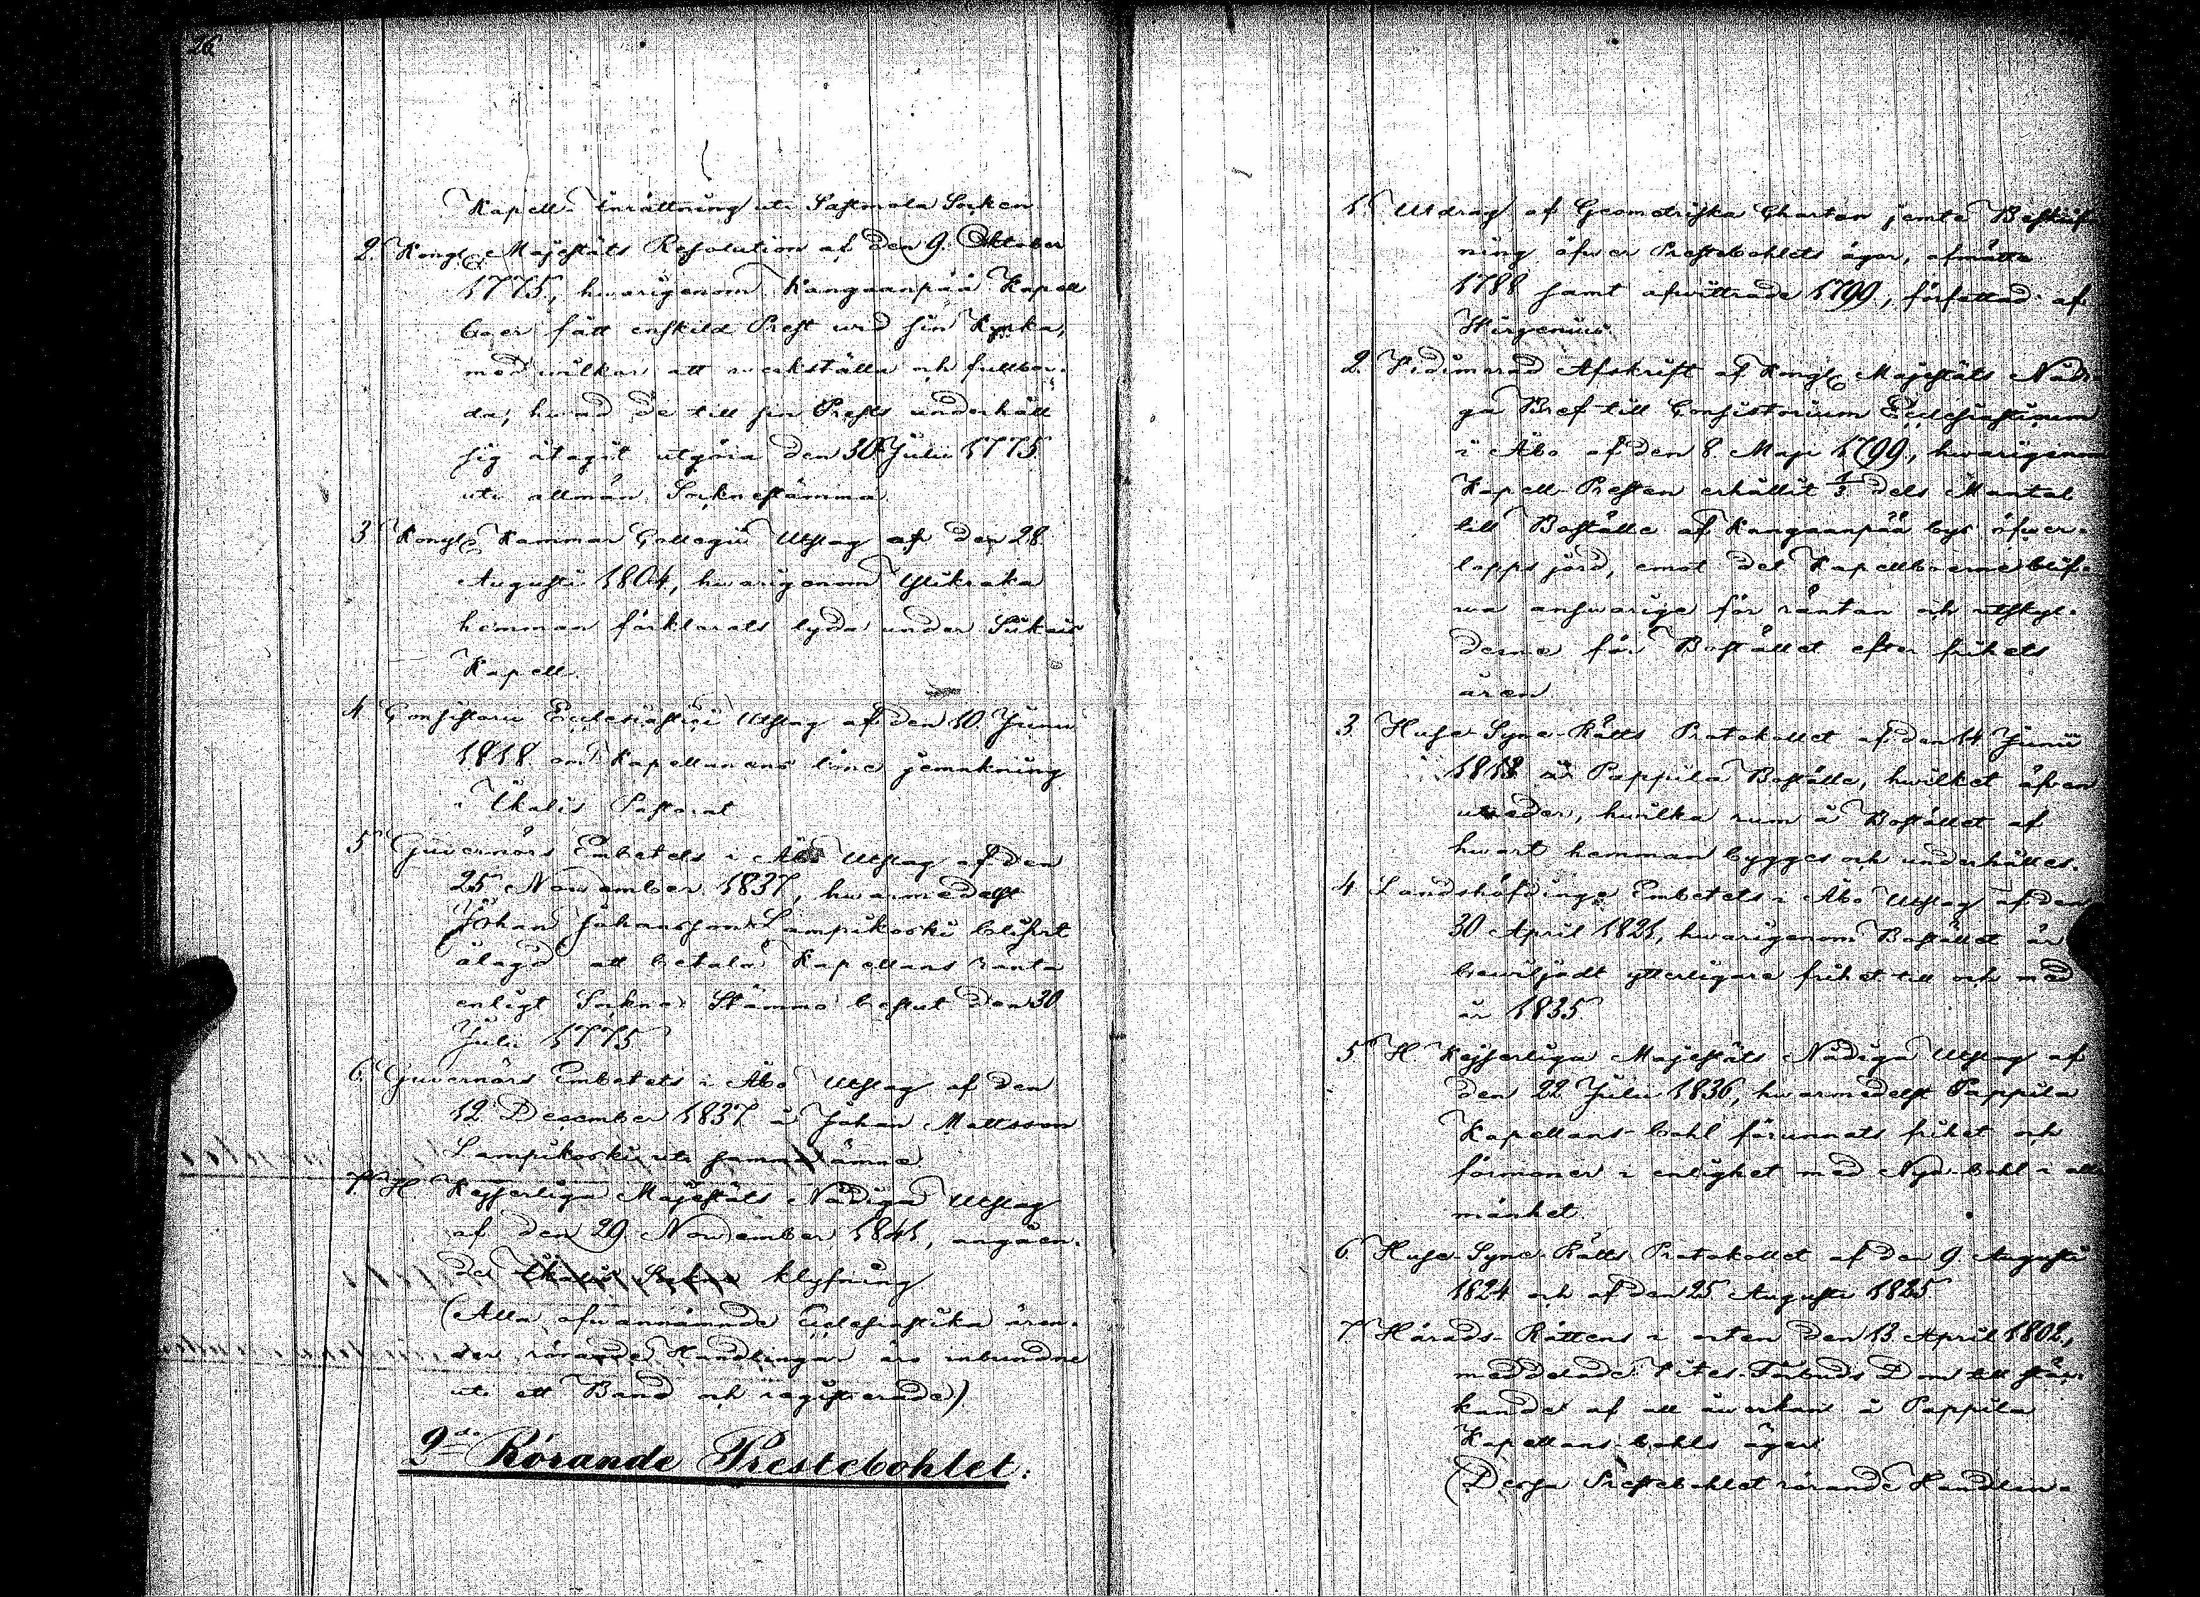 26
Kapell-Inrättning uti Sastmola Socken
2. Kongl. Majestäts Resolution af den 9. Oktober
1775, hwarigenom Kangaanpää Kapell
boer fått enskild Prest wid sin Kyrka,
med wilkor att werkställa och fullbor-
da, hwad de till sin Prests underhåll
sig åtagit utgöra den 30 Julii 1775
uti allmän Sockenestämma
3 Kongl. Kammar Collegii Utslag af den 28
Augusti 1804, hwarigenom
hemman förklarats lyda under Siikais
Kapell.
4 Consistorii Ecclesiastici Utslag af den 10. Junii
1818 om Kapellanens löne jemnkning
i Ikalis Pastorat
5 Guvernörs Embetets i Åbo Utslag af den
25 November 1837, hwarmedelst
Johan Johansson Lampikoski blifwit
ålagd att betala Kapellans ränta
enligt Sockne Stämmo beslut den 30
Julii 1775
6. Guvernörs Embetets i Åbo Utslag af den
12 December 1837 å Johan Mattsson
Lampikoski uti samma ämne
7. H. Kejserliga Majestäts Nådiga Utslag
af den 29 November 1841, angåen-
de Ikalis Sockne klyfning
(Alla ofwannämnde Ecclesiastika ären-
der rörande Handlingar äro inbundne
uti ett Band och registrerade)
2do Rörande Prestebohlet:
1. Utdrag af Geometriska Chartan jemte Beskrif
ning öfwer Prestebohlets ägor, afmätte
1788 samt afwittrade 1799, författad af
Wirzenius
2. Vidimerad Afskrift af Kongl. Majestäts Nådi-
ga Bref till Consistorium Ecclesiasticum
i Åbo af den 8 Maji 1799, hwarigenom
Kapell-Presten erhållit 1/3 dels Mantal
till Boställe af Kangaanpää bys öfwer-
lopps jord, emot det Kapellboerne blif-
wa answarige för räntan och utskyl-
derne för Bostället efter frihets
åren
3 Huse-Syne-Rätts Protokollet af den 14 Junii
1818 å Pappila Boställe, hwilket äfwen
utreder, hwilka rum å Bostället af
hwart hemman bygges och underhålles.
4 Landshöfdinge Embetets i Åbo Utslag af den
30 April 1821, hwarigenom Bostället är
bewiljadt ytterligare frihet till och med
år 1835
5 H. Kejserliga Majestäts Nådiga Utslag af
den 22 Julii 1836, hwarmedelst Pappila
Kapellans-bohl förunnats frihet och
förmoner i enlighet med Nya-bohl i all-
mänhet.
6 Huse-Syne-Rätts Protokollet af den 9. Augusti
1824 och af den 25 Augusti 1825
7 Härads-Rättens i orten den 13 April 1802,
meddelade Vites-Förbuds Dom till stär-
kande af all åwerkan å Pappila
Kapellans-bohls ägor
(Dessa Prestebohlet rörande Handlin-